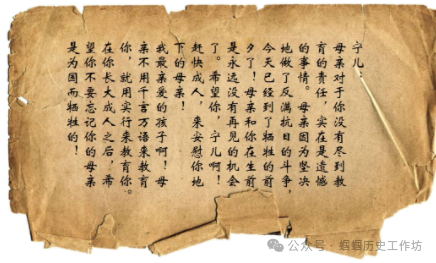 宁儿：
母亲对于你没有尽到教
育的责任，实在是遗憾
的事情。母亲因为坚决
地做了反满抗日的斗争，
今天已经到了牺牲的前
夕了！母亲和你在生前
是永远没有再见的机会
了。希望你，宁儿啊！
赶快成人，来安慰你地
下的母亲！
我最亲爱的孩子啊！母
亲不用千言万语来教育
你，就用实行来教育你。
在你长大成人之后，希
望你不要忘记你的母亲
是为国而牺牲的！
公众号·蝈蝈历史工作坊